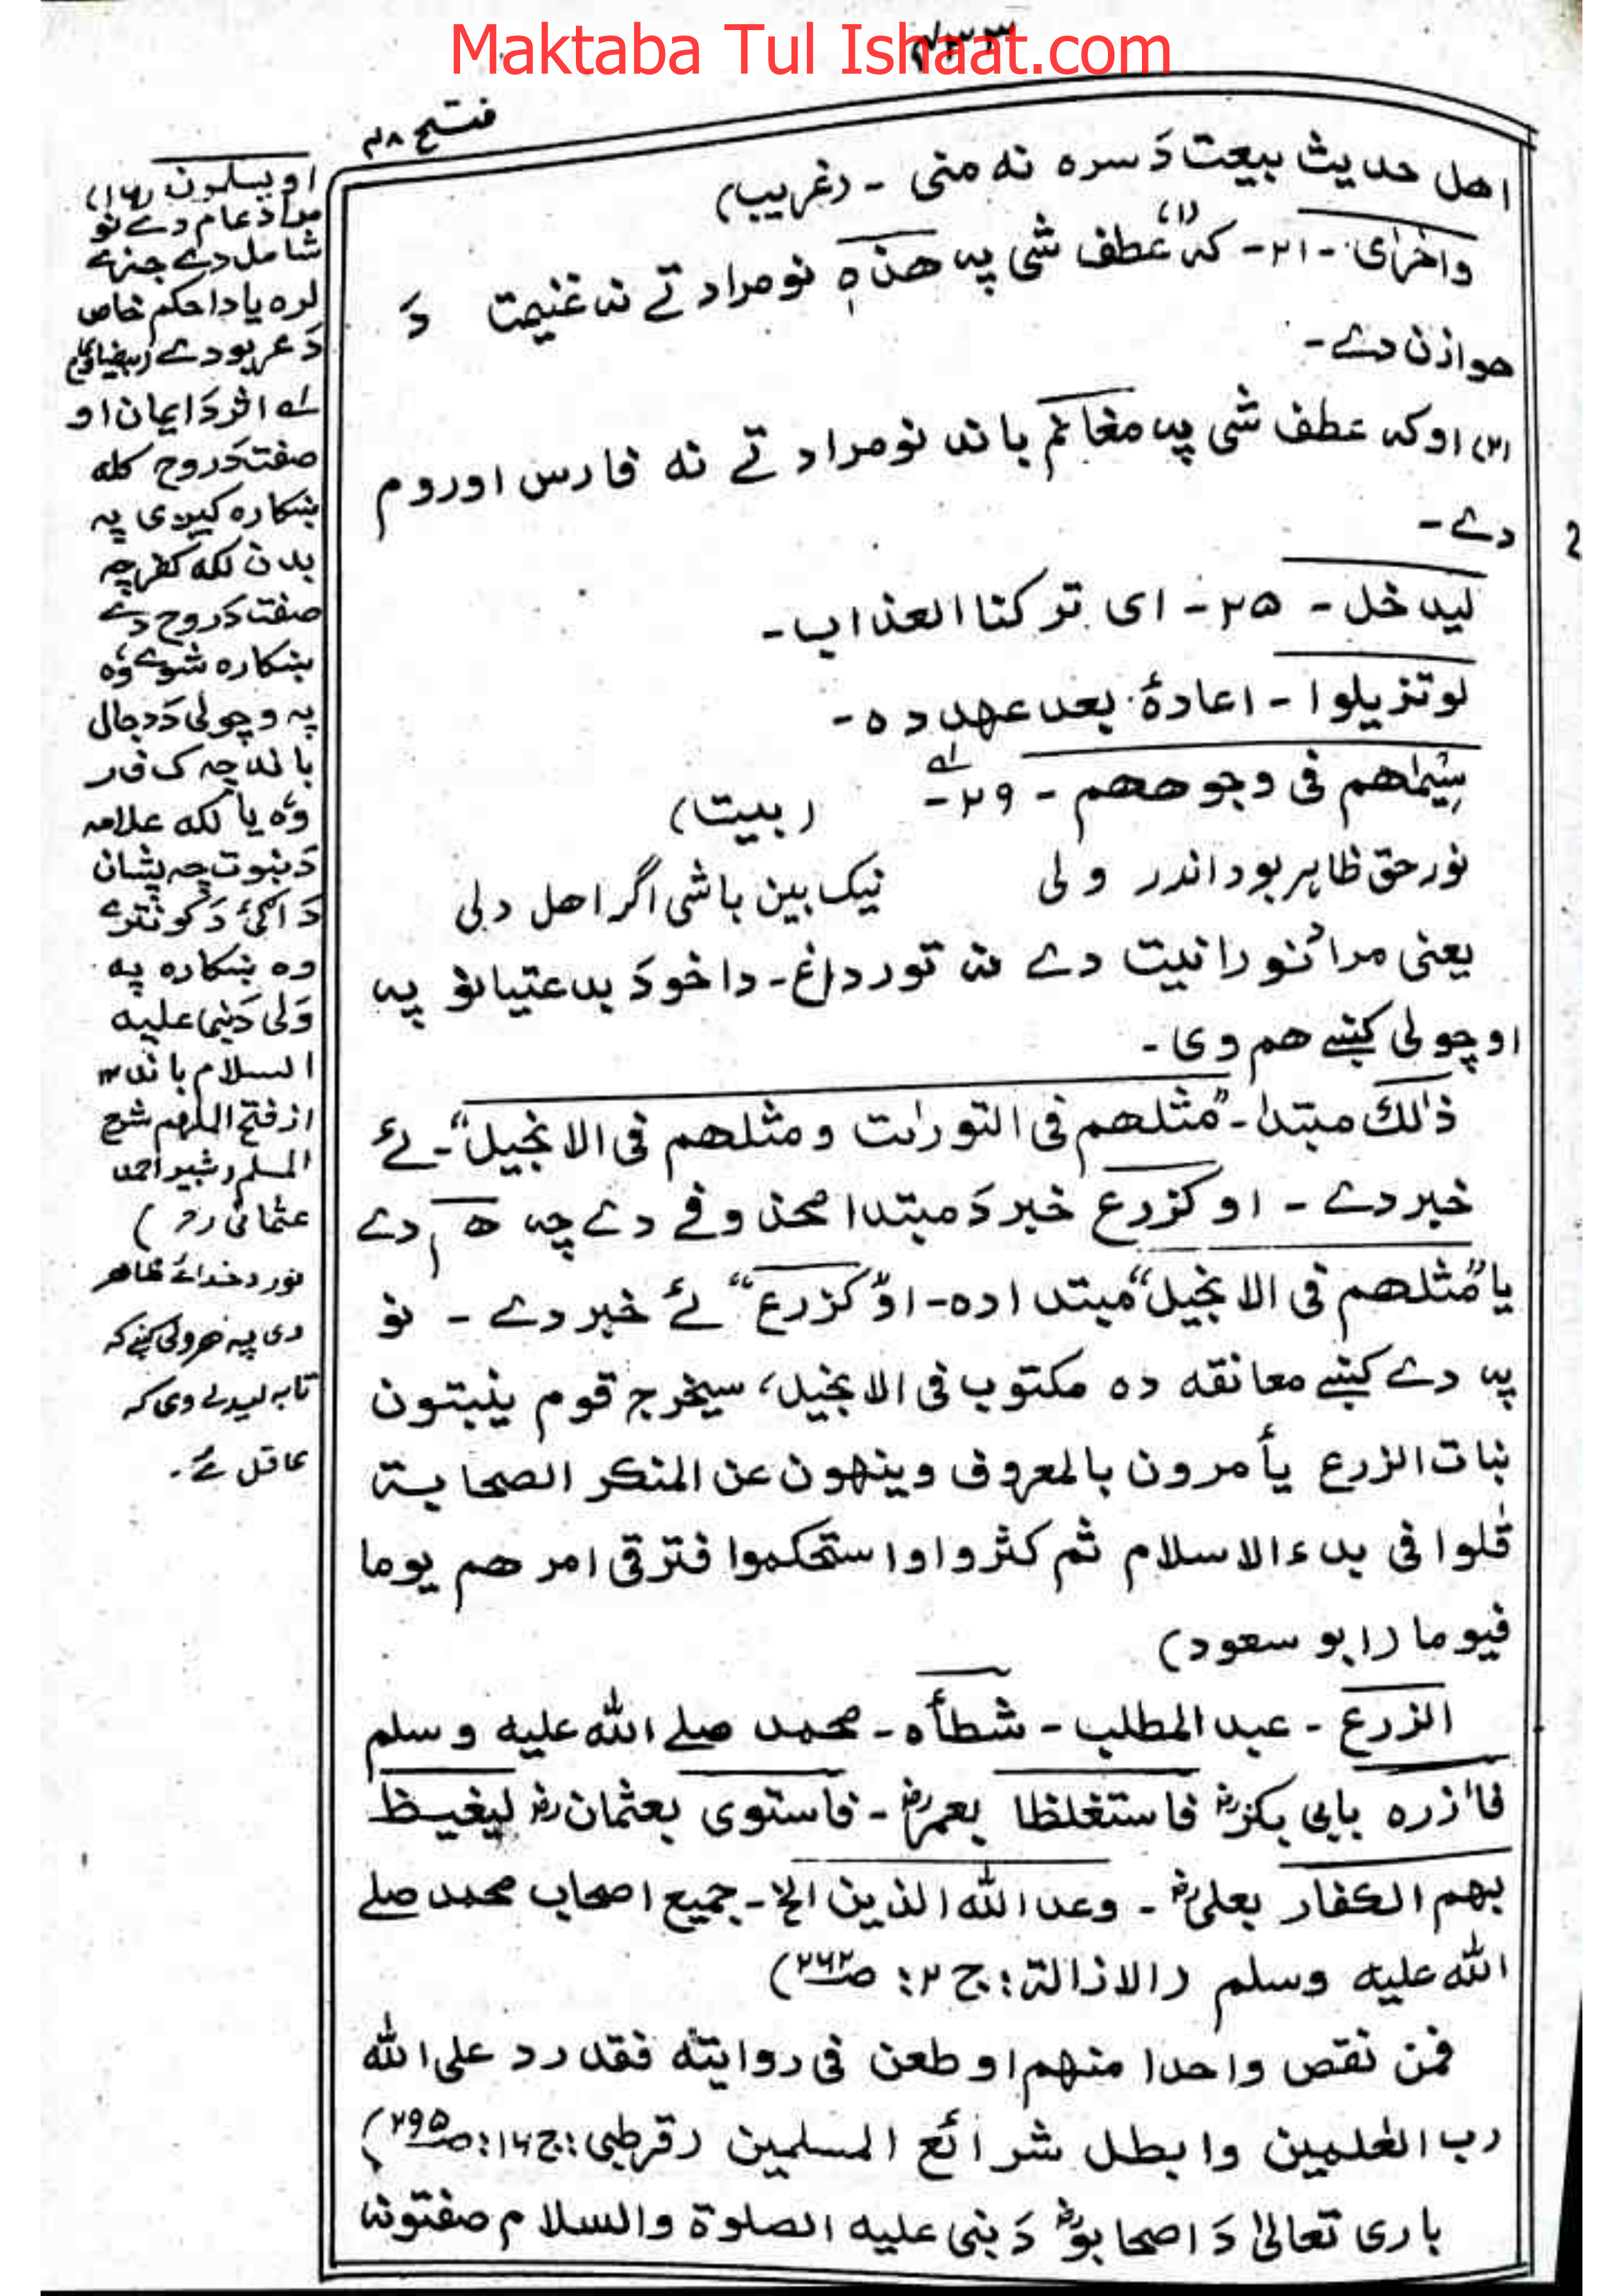 Maktaba Tul Ishaat.com
۷۳۳
فتح ۴۸
اهل حدیث بیعت دَ سره نه منی - (غریب)
واخرٰی - ۲۱ - که (۱) عطف شی په هذه نو مراد تے نه غنیمت دَ
هوازن دے -
(۲) او که عطف شی په مغانم باند نو مراد تے نه فارس او روم
دے -
لیدخل - ۲۵ - ای ترکنا العذاب -
لو تزیلوا - اعادهٔ بعد عهد ده -
سِیماهم فی وجوههم - ۲۹ - (بیت)
نور حق ظاہر بود اندر ولی نیک بین باشی اگر اهل دلی
یعنی مراد نورانیت دے نه تور داغ - دا خو دَ بدعتیانو په
اوچولی کښے هم وی -
ذٰلك مبتدا - "مثلهم فی التورٰىت ومثلهم فی الانجیل" - ئے
خبر دے - او کزرع خبر دَ مبتدا محذوفے دے چه هم دے
یا "مثلهم فی الانجیل" مبتدا ده - او "کزرع" ئے خبر دے - نو
په دے کښے معانقه ده مکتوب فی الانجیل، سیخرج قوم ینبتون
نبات الزرع یأمرون بالمعروف وینهون عن المنکر الصحابة
قلوا فی بدء الاسلام ثم کثروا واستحکموا فترقی امرهم یوما
فیوما (ابو سعود)
الزرع - عبد المطلب - شطأه - محمد صلے الله علیه وسلم
فاٰزره بابی بکرؓ فاستغلظا بعمرؓ - فاستوی بعثمانؓ لیغیظ
بهم الکفار بعلیؓ - وعد الله الذین الخ - جمیع اصحاب محمد صلے
الله علیه وسلم (الازالة: ج ۲: صـ ۲۶۲)
فمن نقص واحدا منهم او طعن فی روایته فقد رد علی الله
رب العٰلمین وابطل شرائع المسلمین (قرطبی: ج ۱۶: صـ ۲۹۵)
باری تعالیٰ دَ اصحابوؓ دَ نبی علیه الصلوة والسلام صفتونه
او یسلمون (۱۶)
مراد عام دے نو
شامل دے جزیے
لره یا دا حکم خاص
دَ عربو دے (بیضاوی)
لے اثر دَ ایمان او
صفت دَ روح کله
ښکاره کیږی په
بدن لکه کفر چه
صفت دَ روح دے
ښکاره شوے وُه
په وچولی دَ دجال
باند چه ک ف ر
وُه یا لکه علامه
دَ نبوت چه پشان
دَ اګئ دَ کونترے
وه ښکاره په
وَلی دَ نبی علیه
السلام باند ۱۲
از فتح الملهم شرح
المسلم (شبیر احمد
عثمانی رح)
نور د خدائے ظاهر
دی په هر ولی کښے که
تا به لیدلے وی که
عاقل ئے -